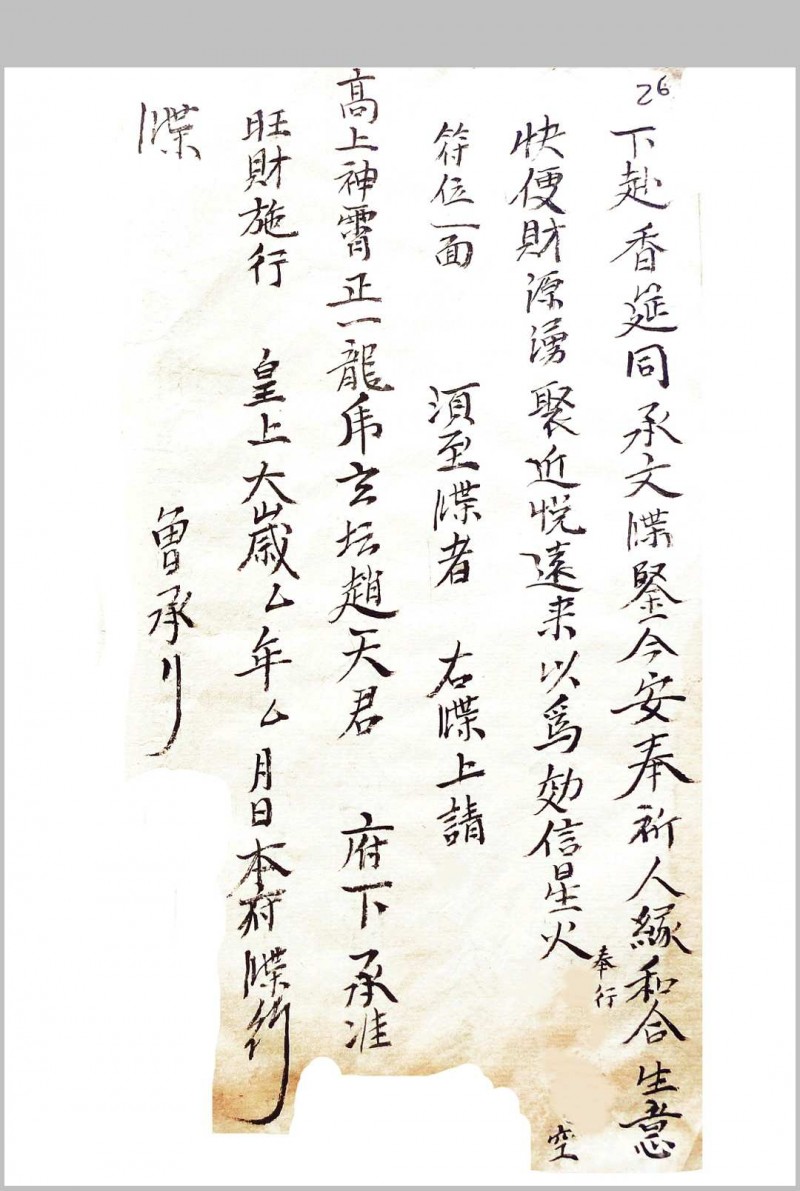 26
下赴香筵同承文牒鋻今安奉祈人緣和合生意
快便財源湧聚近悅遠来以爲効信星火
奉行
空
符位一面 須至牒者 右牒上請
高上神霄正一龍虎玄坛趙天君 府下承准
旺財施行 皇上大歲厶年厶月日本府牒行
牒 曾承行